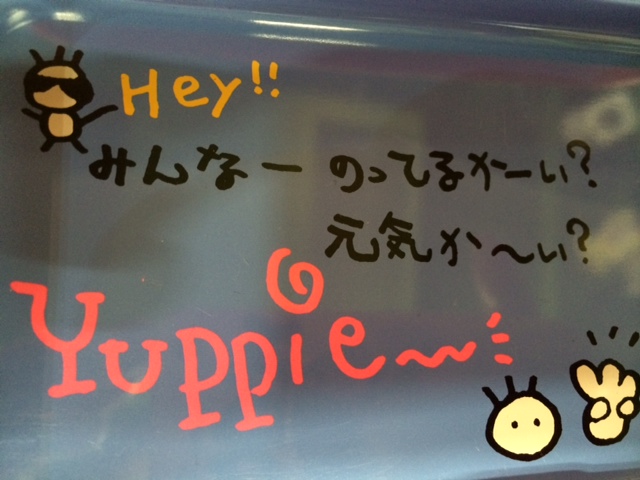 Hey!!
みんなー のってるかーい?
元気か〜い?
Yuppie〜